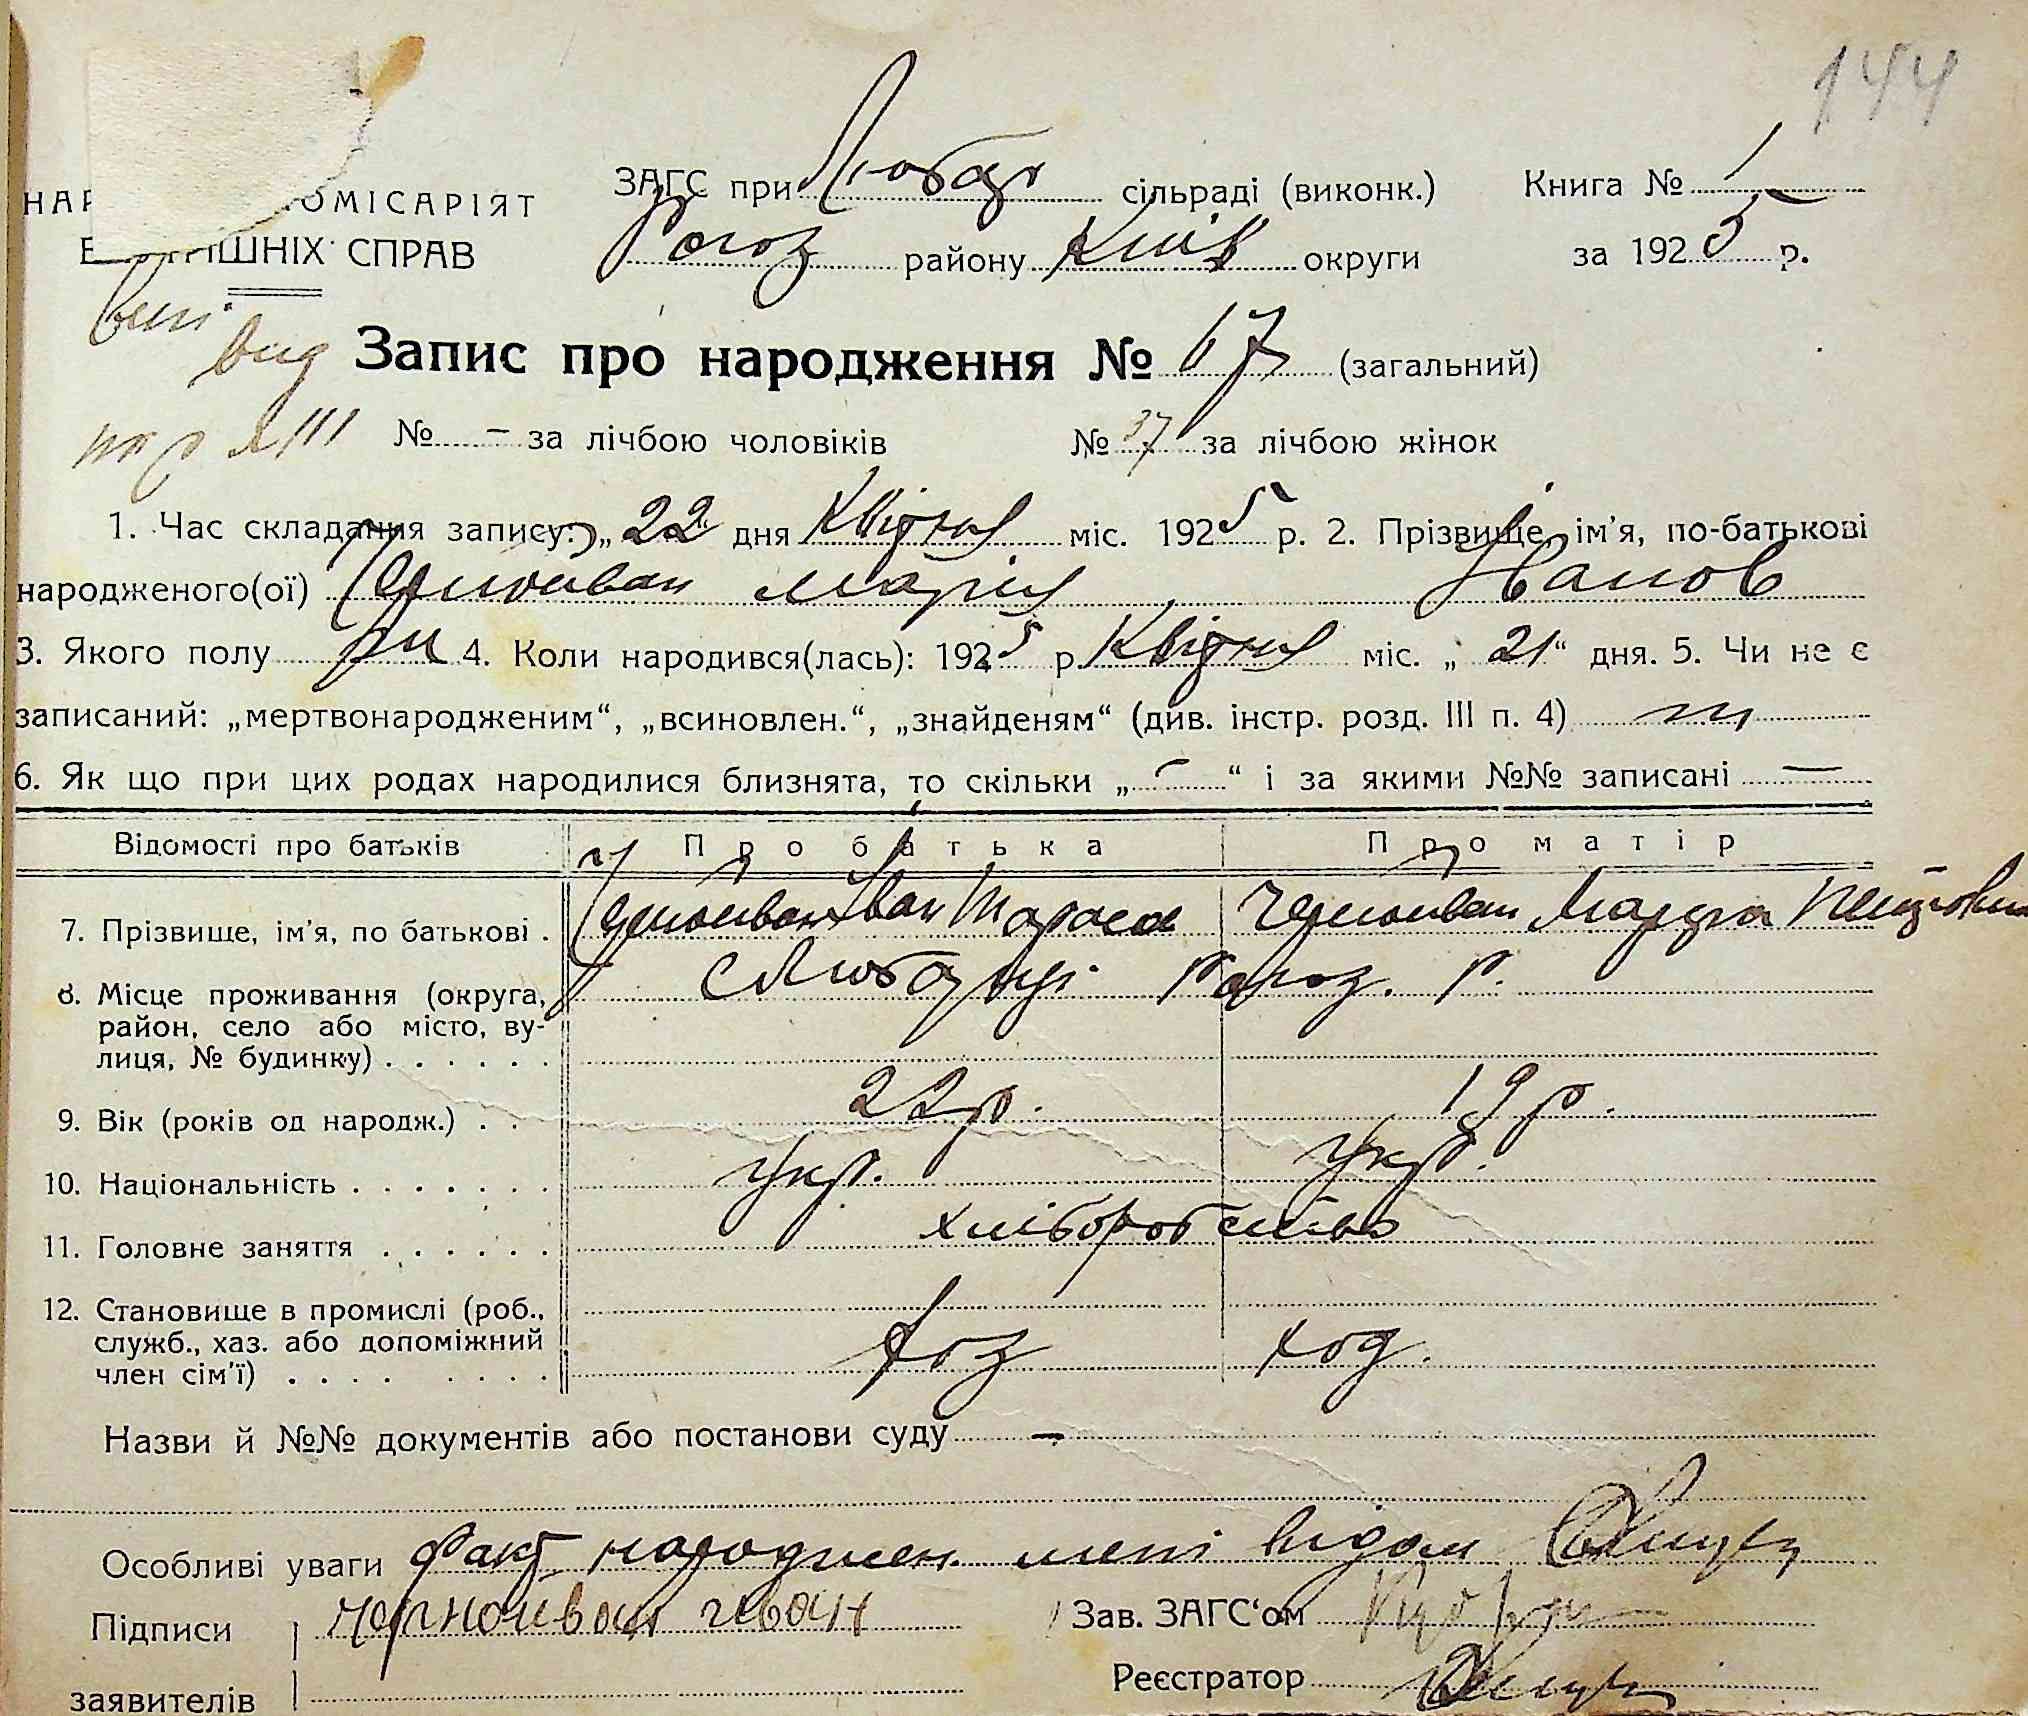 144
ЗАГС при Любар сільраді (виконк.) Книга № 1
НАР ОМІСАРІЯТ
Рогоз району Київ округи за 1925 р.
ІШНІХ СПРАВ
вид Запис про народження № 67 (загальний)
№ - за лічбою чоловіків № 37 за лічбою жінок
1. Час складання запису: „22" дня Квітня міс. 1925 р. 2. Прізвище, ім'я, по-батькові
народженого(ої) Черноиван Марія Іванов
3. Якого полу жін 4. Коли народився(лась): 1925 р. Квітня міс. „21" дня. 5. Чи не є
записаний: „мертвонародженим", „всиновлен.", „знайденям" (див. інстр. розд. III п. 4)
6. Як що при цих родах народилися близнята, то скільки „-" і за якими №№ записані —
Відомості про батьків Про батька Про матір
7. Прізвище, ім'я, по батькові . Черноиван Иван Тараса Черноиван Марфа
8. Місце проживання (округа, с Любарці Рогоз. р.
район, село або місто, ву-
лиця, № будинку) . . . . . .
9. Вік (років од народж.) . . 22 р. 19 р.
10. Національність . . . . . . . Укр. Укр.
11. Головне заняття . . . . . . хліборобство
12. Становище в промислі (роб.,
служб., хаз. або допоміжний хоз ход.
член сім'ї) . . . . . . . .
Назви й №№ документів або постанови суду —
Особливі уваги Факт народжен. мені відом
Підписи Черноиван иван Зав. ЗАГС'ом
Реєстратор
заявителів